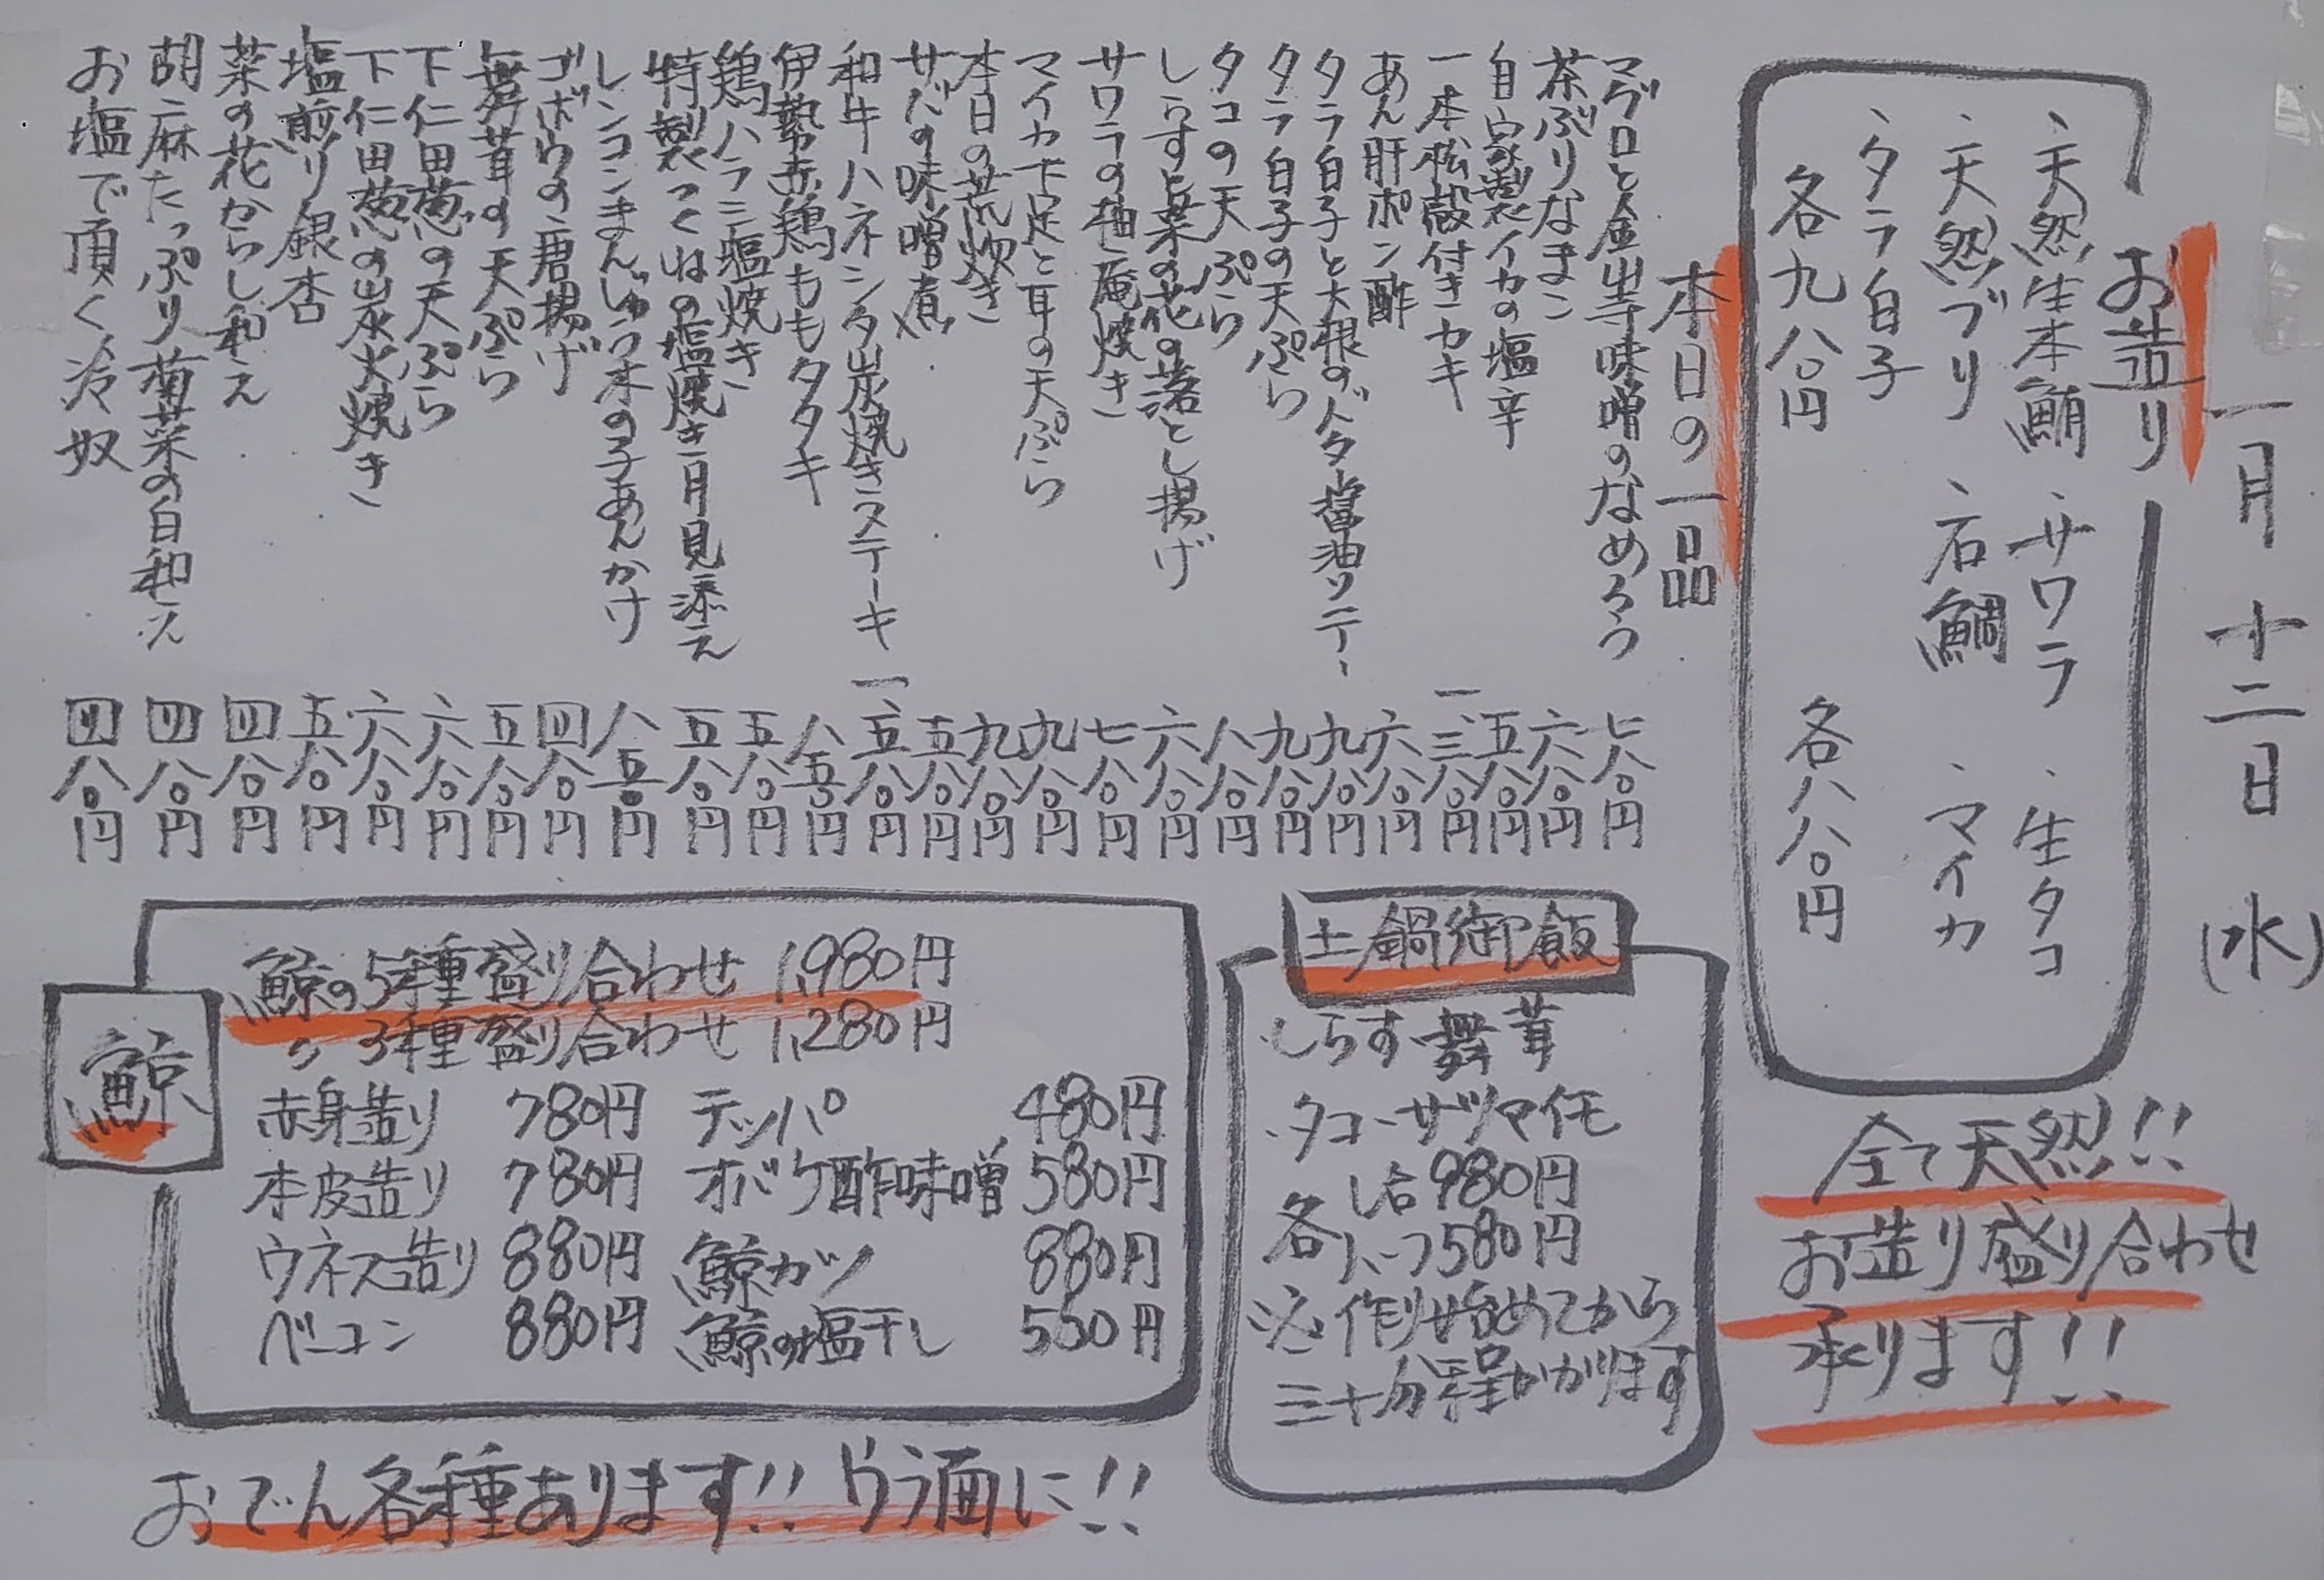 一月十二日(水)
お造り
、天然生本鮪 、サワラ 、生タコ
、天然ブリ 、石鯛 、マイカ
、タラ白子
各九八〇円 各八八〇円
全て天然!!
お造り盛り合わせ
承ります!!
本日の一品
マグロと金山寺味噌のなめろう 七八〇円
茶ぶりなまこ 六八〇円
自家製イカの塩辛 五八〇円
一本松殻付きカキ 一、三八〇円
あん肝ポン酢 六八〇円
タラ白子と大根のバター醤油ソテー 九八〇円
タラ白子の天ぷら 九八〇円
タコの天ぷら 八八〇円
しらすと菜の花の落とし揚げ 六八〇円
サワラの柚庵焼き 七八〇円
マイカ下足と耳の天ぷら 九八〇円
本日の荒炊き 九八〇円
サバの味噌煮 五八〇円
和牛ハネシタ炭焼きステーキ 一、五八〇円
伊勢赤鶏ももタタキ 八五〇円
鶏ハラミ塩焼き 五八〇円
特製つくねの塩焼き 月見添え 五八〇円
レンコンまんじゅう 木の子あんかけ 八五〇円
ゴボウの唐揚げ 四八〇円
舞茸の天ぷら 五八〇円
下仁田葱の天ぷら 六八〇円
下仁田葱の炭火焼き 六八〇円
塩煎り銀杏 五八〇円
菜の花からし和え 四八〇円
胡麻たっぷり菊菜の白和え 四八〇円
お塩で頂く冷奴 四八〇円
土鍋御飯
・しらす・舞茸
・タコ・サツマイモ
各 1合980円
1/2つ580円
※作り始めてから
三十分程かかります
鯨
鯨の5種盛り合わせ 1,980円
〃 3種盛り合わせ 1,280円
赤身造り 780円 テッパ 480円
本皮造り 780円 オバケ酢味噌 580円
ウネス造り 880円 鯨カツ 880円
ベーコン 880円 鯨の塩干し 550円
おでん各種あります!! ウラ面に!!